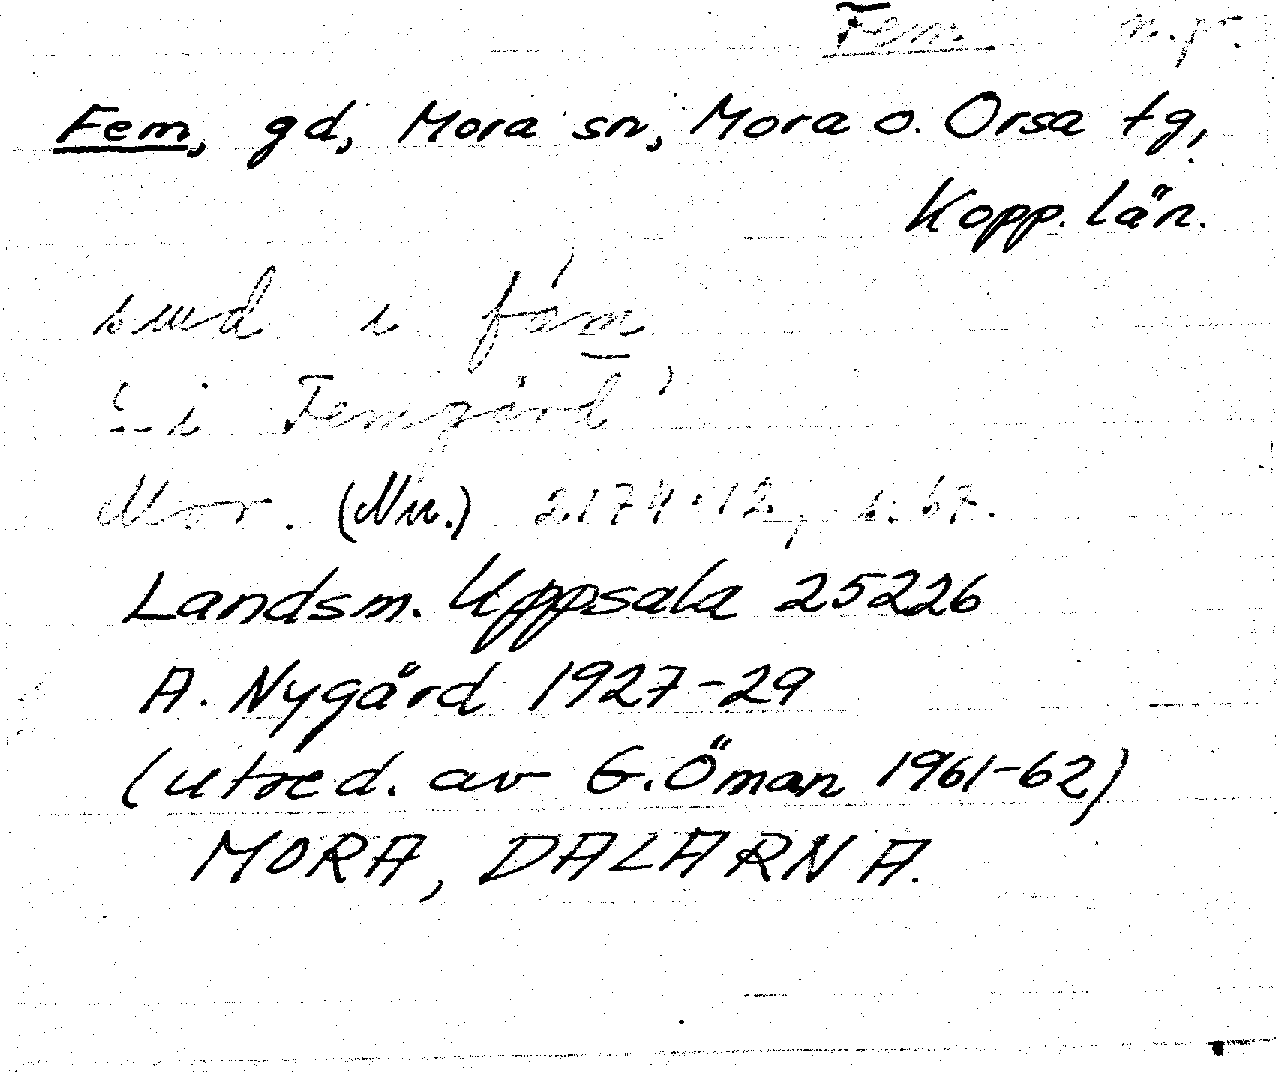 Fem n.pr.
Fem, gd, Mora sn, Mora o. Orsa tg,
Kopp. län.
i fa'm
'- i Femgård'
Mor. (Mn.) 2174:12, s. 67.
Landsm. Uppsala 25226
A. Nygård 1927-29
(utred. av G. Öman 1961-62)
MORA, DALARNA.